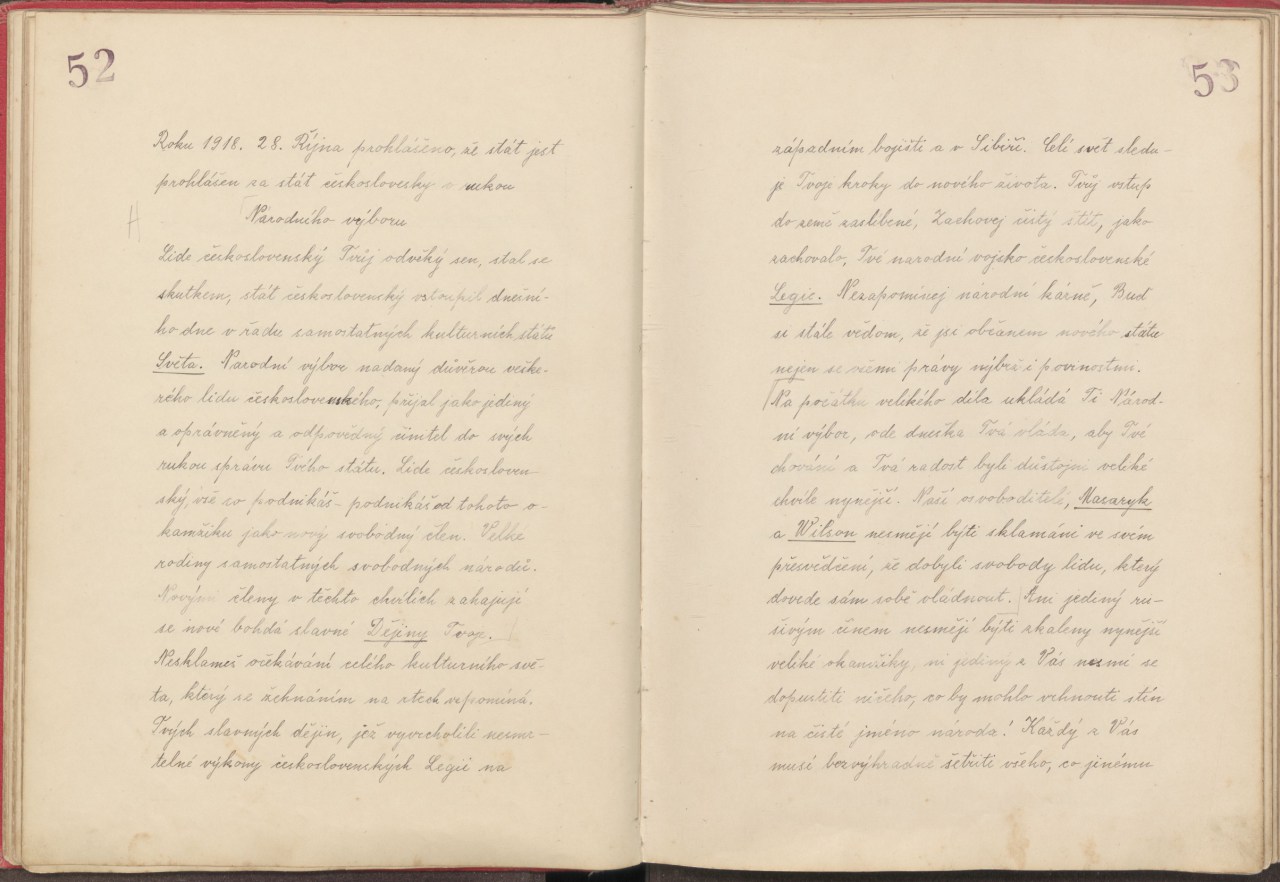 52
Roku 1918. 28. Října prohlášeno, že stát jest
prohlášen za stát českoslovesky o rukou
H Národního výboru
Lide československý Tvůj odvěký sen, stal se
skutkem, stát československý vstoupil dnešní-
ho dne v řadu samostatných kulturních států
Světa. Narodní výbor nadaný důvěrou veške-
rého lidu československého, přijal jako jediný
a oprávněný a odpovědný činitel do svých
rukou správu Tvého státu. Lide českosloven-
ský, vše co podnikáš - podnikáš od tohoto o-
kamžiku jako nový svobodný člen. Velké
rodiny samostatných svobodných národů.
Novými členy v těchto chvílích zahajují
se nové bohdá slavné Dějiny Tvoje.
Nesklameš očekávání celého kulturního svě-
ta, který se žehnáním na rtech vzpomíná.
Tvých slavných dějin, jež vyvrcholili nesmr-
telné výkony československých Legií na
53
západním bojišti a v Sibiři. Celí svět sledu-
je Tvoje kroky do nového života. Tvůj vstup
do země zaslíbené, Zachovej čistý štít, jako
zachovalo, Tvé narodní vojsko československé
Legie. Nezapomínej národní kárně, Buď
se stále vědom, že jsi občanem nového státu
nejen se všemi právy nýbrž i povinostmi.
Na počátku velikého díla ukládá Ti Národ-
ní výbor, ode dneška Tvá vláda, aby Tvé
chování a Tvá radost byli důstojni veliké
chvíle nynější. Naší osvoboditelé, Masaryk
a Wilson nesmějí býti sklamáni ve svém
přesvědčení, že dobyli svobody lidu, který
dovede sám sobě vládnout. Ani jediný ru-
šivým činem nesmějí býti zkaleny nynější
veliké okamžiky, ni jediný z Vás nesmí se
dopustiti ničeho, co by mohlo vrhnouti stín
na čisté jméno národa! Každý z Vás
musí bezvýhradně šetřiti všeho, co jinému